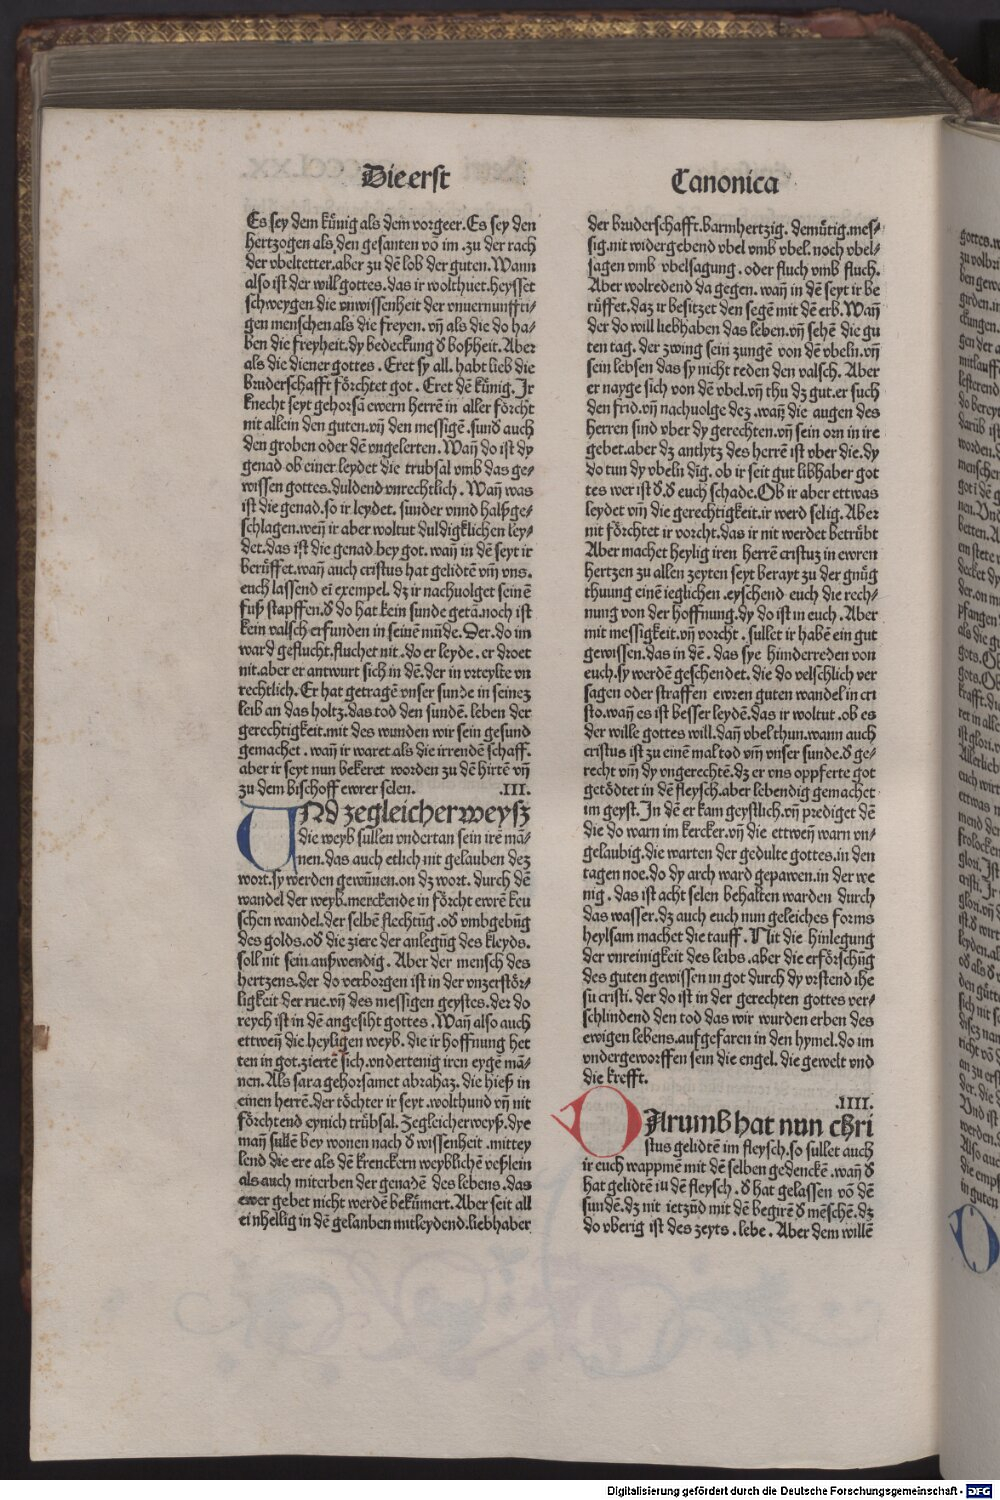 Die erst
Canonica
Es sey dem kůnig als dem vorgeer. Es sey den
hertzogen als den gesanten vō im .zu der rach
der vbeltetter.aber zu dē lob der guten. Wann
also ist der will gottes.das ir wolthuet.heysset
schweygen die vnwissenheit der vnuernunfftⸯ
gen menschen als die freyen. vn̄ als die do ha⸗
ben die freyheit.dy bedeckung d̕ boßheit. Aber
als die diener gottes . Eret sy all. habt lieb die
bruderschafft förchtet got . Eret dē kůnig. Ir
knecht seyt gehorsā ewern herrē in aller förcht
nit allein den guten.vn̄ den messigē .sund̕ auch
den groben oder dē vngelerten. Wan̄ do ist dy
genad ob einer leydet die trubsal vmb das ge⸗
wissen gottes.duldend vnrechtlich . Wan̄ was
ist die genad.so ir leydet. sunder vnnd halßge⸗
schlagen.wen̄ ir aber woltut duldigklichen ley⸗
det.das ist die genad bey got. wan̄ in dē seyt ir
berůffet.wan̄ auch cristus hat gelidtē vm̄ vns.
euch lassend ei exempel. dz ir nachuolget sein ē
fuß stapffen.d̕ do hat kein sunde getā.noch ist
kein valsch erfunden in seinē mūde. Der.do im
ward geflucht.fluchet nit .do er leyde . er droet
nit.aber er antwurt sich in dē.der in vrteylte vn
rechtlich. Er hat getragē vnser sunde in seinez
leib an das holtz.das tod den sundē. leben der
gerechtigkeit.mit des wunden wir sein gesund
gemachet . wan̄ ir waret als die irrendē schaff.
aber ir seyt nun bekeret worden zu dē hirtē vn̄
zu dem bischoff ewrer selen. .III.
UNd zegleicherweysz
die weyb sullen vndertan sein irē mā⸗
nen.das auch etlich nit gelauben dez
wort.sy werden gewūnen.on dz wort. durch dē
wandel der weyb.merckende in förcht ewrē keu
schen wandel.der selbē flechtūg .od̕ vmbgebūg
des golds.od̕ die ziere der anlegūg des kleyds.
soll nit sein außwendig . Aber der mensch des
hertzens.der do verborgen ist in der vnzerstör⸗
ligkeit der rue.vn̄ des messigen geystes.der do
reych ist in dē angesiht gottes . Wan̄ also auch
ettwen̄ die heyligen weyb. die ir hoffnung het
ten in got.ziertē sich.vndertenig iren eygē mā⸗
nen. Als sara gehorsamet abrahaz. die hieß in
einen herrē.der töchter ir seyt .wolthund vn̄ nit
förchtend eynich trůbsal. Zegleicherweyß.dye
man̄ sullē bey wonen nach d̕ wissenheit .mittey
lend die ere als dē krenckern weyblichē veßlein
als auch miterben der genadē des lebens .das
ewer gebet nicht werdē bekūmert. Aber seit all
einhellig in dē gelauben mitleydend.liebhaber
der bruderschafft.barmhertzig. demůtig.mes⸗
sig.nit widergebend vbel vmb vbel. noch vbel⸗
sagen vmb vbelsagung . oder fluch vmb fluch.
Aber wolredend da gegen. wan̄ in dē seyt ir be
růffet.daz ir besitzet den segē mit dē erb. Wan̄
der do will liebhaben das leben.vn̄ sehē die gu
ten tag. der zwing sein zungē von dē vbeln.vn̄
sein lebsen das sy nicht reden den valsch. Aber
er nayge sich von dē vbel.vn̄ thu dz gut.er such
den frid.vn̄ nachuolge dez .wan̄ die augen des
herren sind vber dy gerechten.vn̄ sein orn in ire
gebet.aber dz antlytz des herrē ist vber die.dy
do tun dy vbeln dig. ob ir seit gut libhaber got
tes wer ist d̕.d̕ euch schade. Ob ir aber ettwas
leydet vm̄ die gerechtigkeit.ir werd selig. Aber
nit förchtet ir vorcht.das ir nit werdet betrůbt
Aber machet heylig iren herrē cristuz in ewren
hertzen zu allen zeyten seyt berayt zu der gnůg
thuung einē ieglichen .eyschend euch die rech⸗
nung von der hoffnung.dy do ist in euch . Aber
mit messigkeit.vn̄ vorcht . sullet ir habē ein gut
gewissen.das in dē . das sye hinderreden von
euch.sy werdē geschendet. die do velschlich ver
sagen oder straffen ewren guten wandel in cri
sto.wan̄ es ist besser leydē.das ir woltut .ob es
der wille gottes will.dan̄ vbel thun.wann auch
cristus ist zu einē mal tod vm̄ vnser sunde.d̕ ge⸗
recht vm̄ dy vngerechtē.dz er vns oppferte got
getödtet in dē fleysch.aber lebendig gemachet
im geyst. In dē er kam geystlich.vn̄ prediget dē
die do warn im kercker.vn̄ die ettwen̄ warn vn⸗
gelaubig.die warten der gedulte gottes.in den
tagen noe.do dy arch ward gepawen.in der we
nig . das ist acht selen behalten warden durch
das wasser.dz auch euch nun geleiches forms
heylsam machet die tauff . Nit die hinlegung
der vnreinigkeit des leibs .aber die erförschūg
des guten gewissen in got durch dy vrstend ihe
su cristi. der do ist in der gerechten gottes ver⸗
schlindend den tod das wir wurden erben des
ewigen lebens.aufgefaren in den hymel.do im
vndergeworffen sein die engel. die gewelt vnd
die krefft.
.IIII.
DArumb hat nun chri
stus gelidtē im fleysch.so sullet auch
ir euch wappmē mit dē selben gedenckē .wan̄ d̕
hat gelidtē in dē fleysch . d̕ hat gelassen vō dē
sundē.dz nit ietzūd mit dē begirē d̕ mēschē.dz
do vberig ist des zeyts .lebe . Aber dem willē
Digitalisierung gefördert durch die Deutsche Forschungsgemeinschaft - DFG